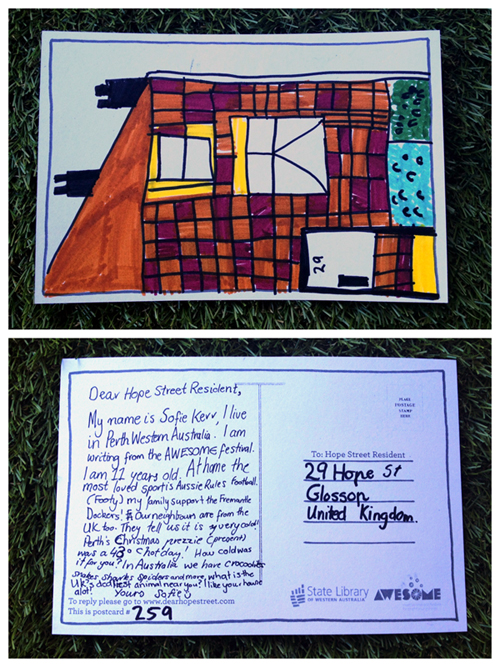 29
Dear Hope Street Resident,
My name is Sofie Kerr, I live
in Perth Western Australia. I am
writing from the AWESOME festival.
I am 11 years old. At home the
most loved sport is Aussie Rules Football.
(Footy) my family support the Fremantle
Dockers! Our neighbours are from the
UK too. They tell us it is very cold!
Perth's Christmas prezzie (present)
was a 43°C hot day! How cold was
it for you? In Australia we have crocodiles
snakes sharks spiders and more, what is the
UK's deadliest animal near you? I like your house
alot! Yours Sofie
To reply please go to www.dearhopestreet.com
This is postcard # 259
PLACE
POSTAGE
STAMP
HERE
To: Hope Street Resident
29 Hope St
Glossop
United Kingdom.
State Library
OF WESTERN AUSTRALIA
AWESOME